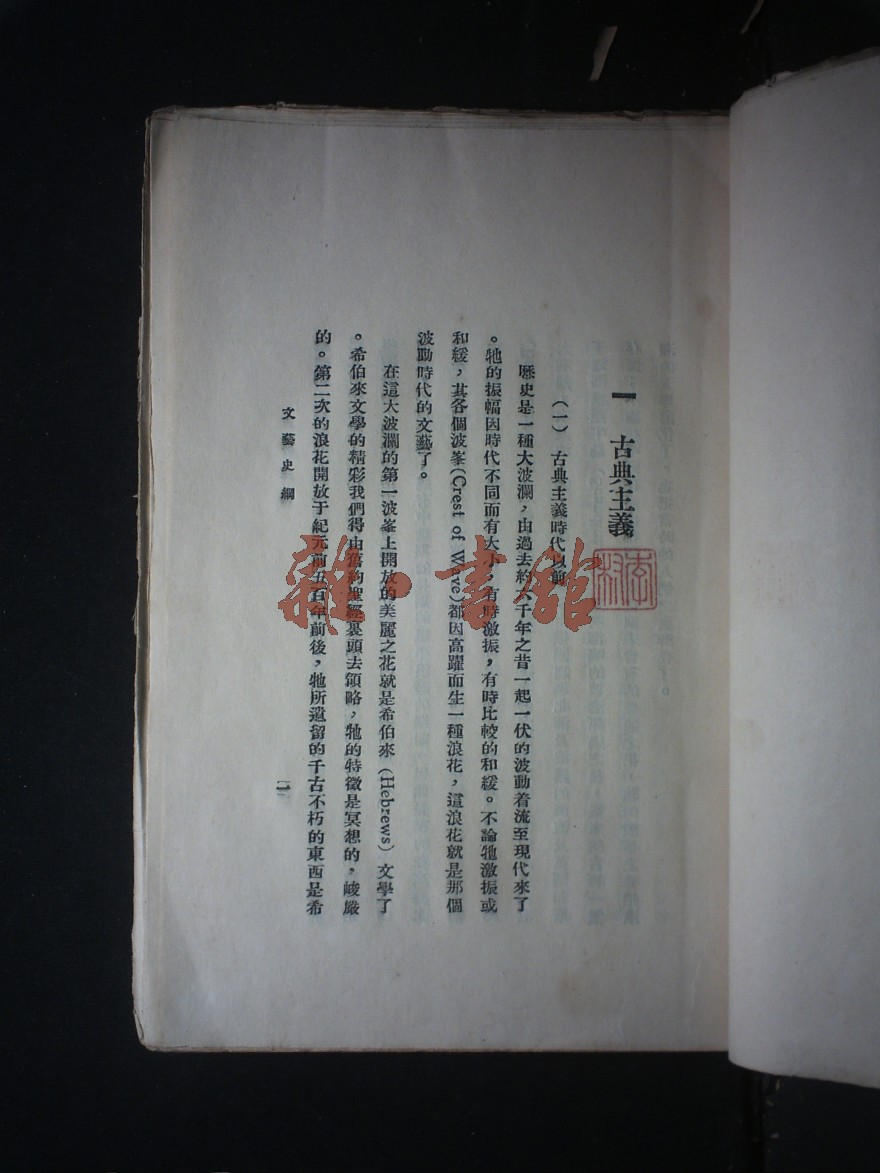 一　古典主義
（一）　古典主義時代以前
歷史是一種大波瀾，由過去約六千年之昔一起一伏的波動着流至現代來了
。牠的振幅因時代不同而有大小，有時激振，有時比較的和緩。不論牠激振或
和緩，其各個波峯(Crest of Wave)都因高躍而生一種浪花，這浪花就是那個
波動時代的文藝了。
在這大波瀾的第一波峯上開放的美麗之花就是希伯來（Hebrews）文學了
。希伯來文學的精彩我們得由舊約聖經裏頭去領略，牠的特徵是冥想的，峻嚴
的。第二次的浪花開放于紀元前五百年前後，牠所遺留的千古不朽的東西是希
文藝史綱
雜·書館